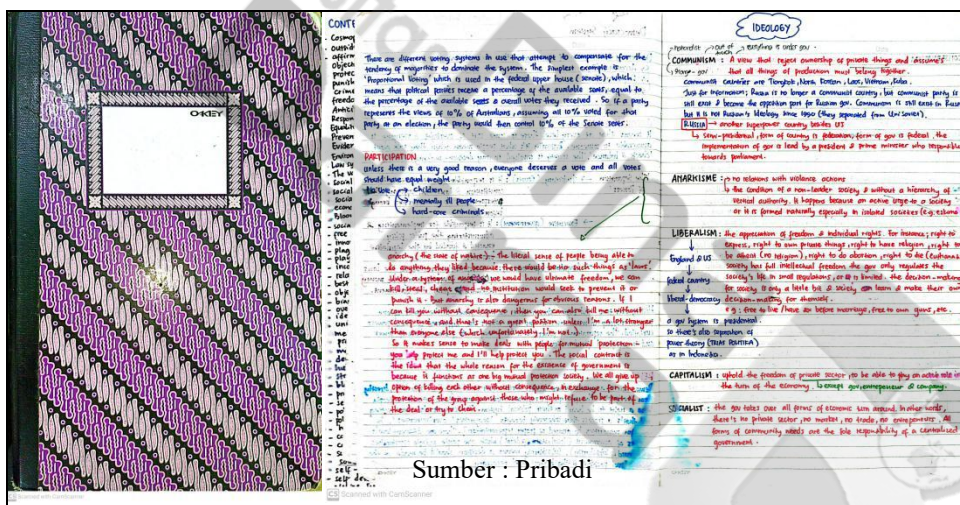 OAKLEY
CONTE
- Cosmo
- outsid
- affirm
- object
- protec
- punish
- crime
- freedo
- Respon
- Equalit
- Preven
- Eviden
- Environ
- Law sy
- The w
- Social
- social
- socia
- econ
- Bloom
- socia
- free
There are different voting systems in use that attempt to compensate for the
tendency of majorities to dominate the system. The simplest example is
'Proportional Voting' which is used in the federal upper house (senate), which
means that political parties receive a percentage of the available seats, equal to
the percentage of the available seats & overall votes they received. So if a party
represents the views of 10% of Australians, assuming all 10% voted for that
party at an election, the party would then control 10% of the Senate seats.
PARTICIPATION
Unless there is a very good reason, everyone deserves a vote and all votes
should have equal weight.
to vote: children
mentally ill people
hard-core criminals
anarchy (the state of nature) - the liberal sense of people being able to
do anything they liked because there would be no such things as 'laws'.
Under a system of anarchy we would have ultimate freedom, we can
kill, steal, cheat and no institution would seek to prevent it or
punish it - but anarchy is also dangerous for obvious reasons. If I
can kill you without consequence, then you can also kill me without
consequence, and that's not a great position unless I'm a lot stronger
than everyone else (which unfortunately, I'm not).
So it makes sense to make deals with people for mutual protection -
you protect me and I'll help protect you. The social contract is
the idea that the whole reason for the existence of government is
because it functions as one big mutual protection society. We all give up
option of killing each other without consequence, in exchange for the
protection of the group against those who might refuse to be part of
the deal or try to cheat.
IDEOLOGY
everything is under gov.
COMMUNISM : A view that reject ownership of private things and assume's
that all things of production must belong together.
communist countries are Tiongkok, North Korean, Laos, Vietnam, Cuba.
Just for information; Russia is no longer a communist country, but communist party is
still exist & become the opposition part for Russian gov. Communism is still exist in Russia
but it is not Russian's Ideology since 1990 (they separated from Uni Soviet).
RUSSIA → another superpower country besides US
↳ semi-presidential, form of country is federation, form of gov is federal, the
implementation of gov is lead by a president & prime minister who responsible
towards parliament.
ANARKISME : no relations with violence actions
↳ the condition of a non-leader society & without a hierarchy of
vertical authority. It happens because an active urge to a society
or it is formed naturally especially in isolated societies (e.g: eskimo
LIBERALISM : the appreciation of freedom & individual rights. For instance; right to
express, right to own private things, right to have religion, right to
be atheist (no religion), right to do abortion, right to die (euthanasia
England & US society has full intellectual freedom. the gov only regulates the
society's life in small regulations, or it is limited. the decision-making
federal country for society is only a little bit & society can learn & make their own
liberal-democracy decision-making for themself.
e.g: free to live / have sex before marriage, free to own guns, etc.
a gov system is presidential
so there's also separation of
power theory (TRIAS POLITIKA)
as in Indonesia.
CAPITALISM : uphold the freedom of private sector, to be able to play an active role in
the turn of the economy. ↳ except gov, entrepreneur & company.
SOCIALIST : the gov takes over all forms of economic turn around. In other words,
there's no private sector, no market, no trade, no entrepreneurs. All
forms of community needs are the sole responsibility of a centralised
government.
Sumber : Pribadi
CS Scanned with CamScanner
CS Scanned with CamScanner